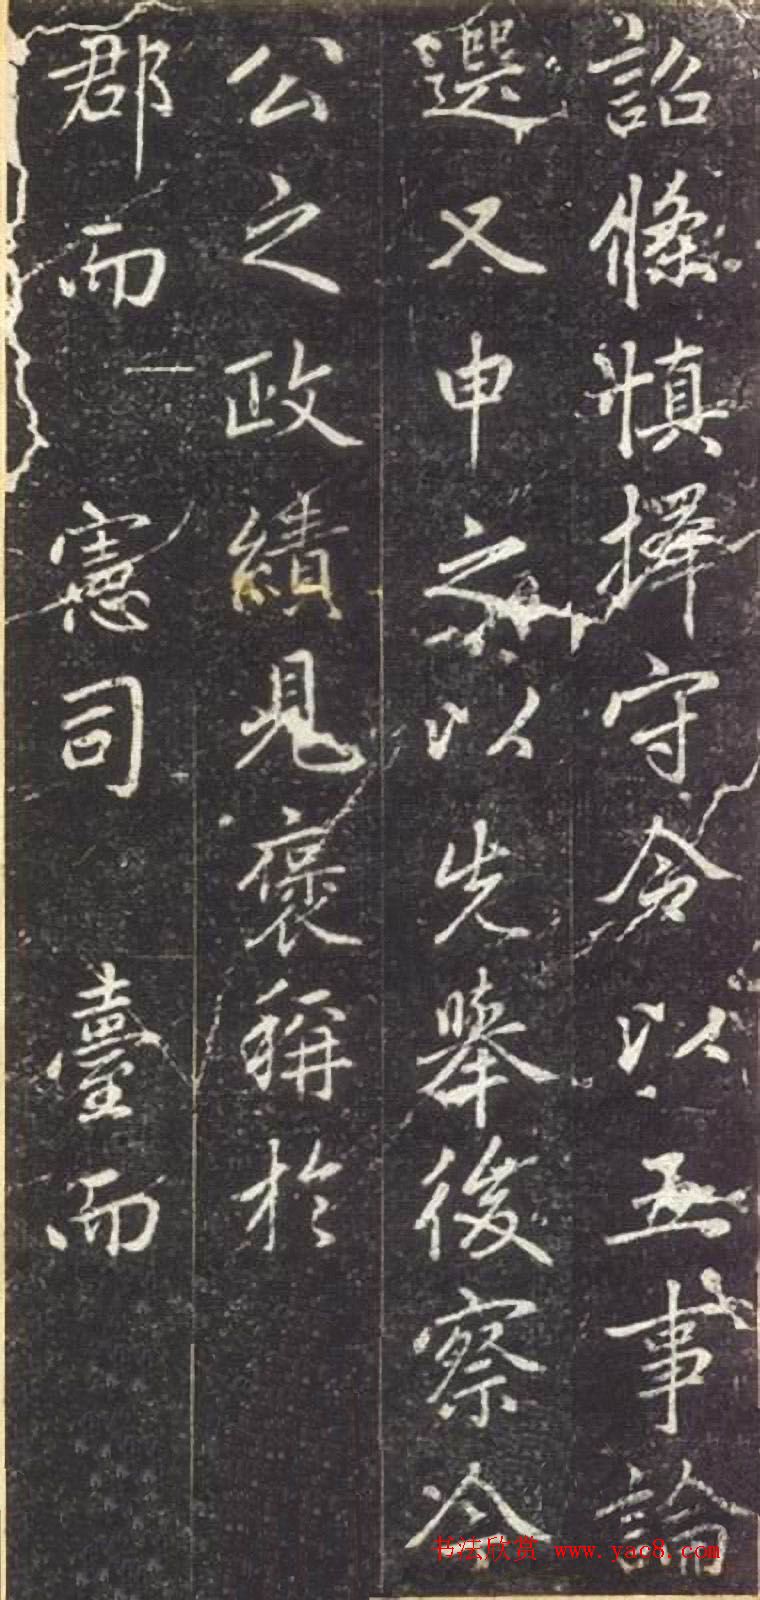 詔條慎擇守令以五事論
選又申之以先舉後察今
公之政績見褒稱於
郡而憲司臺而
书法欣赏 www.yac8.com